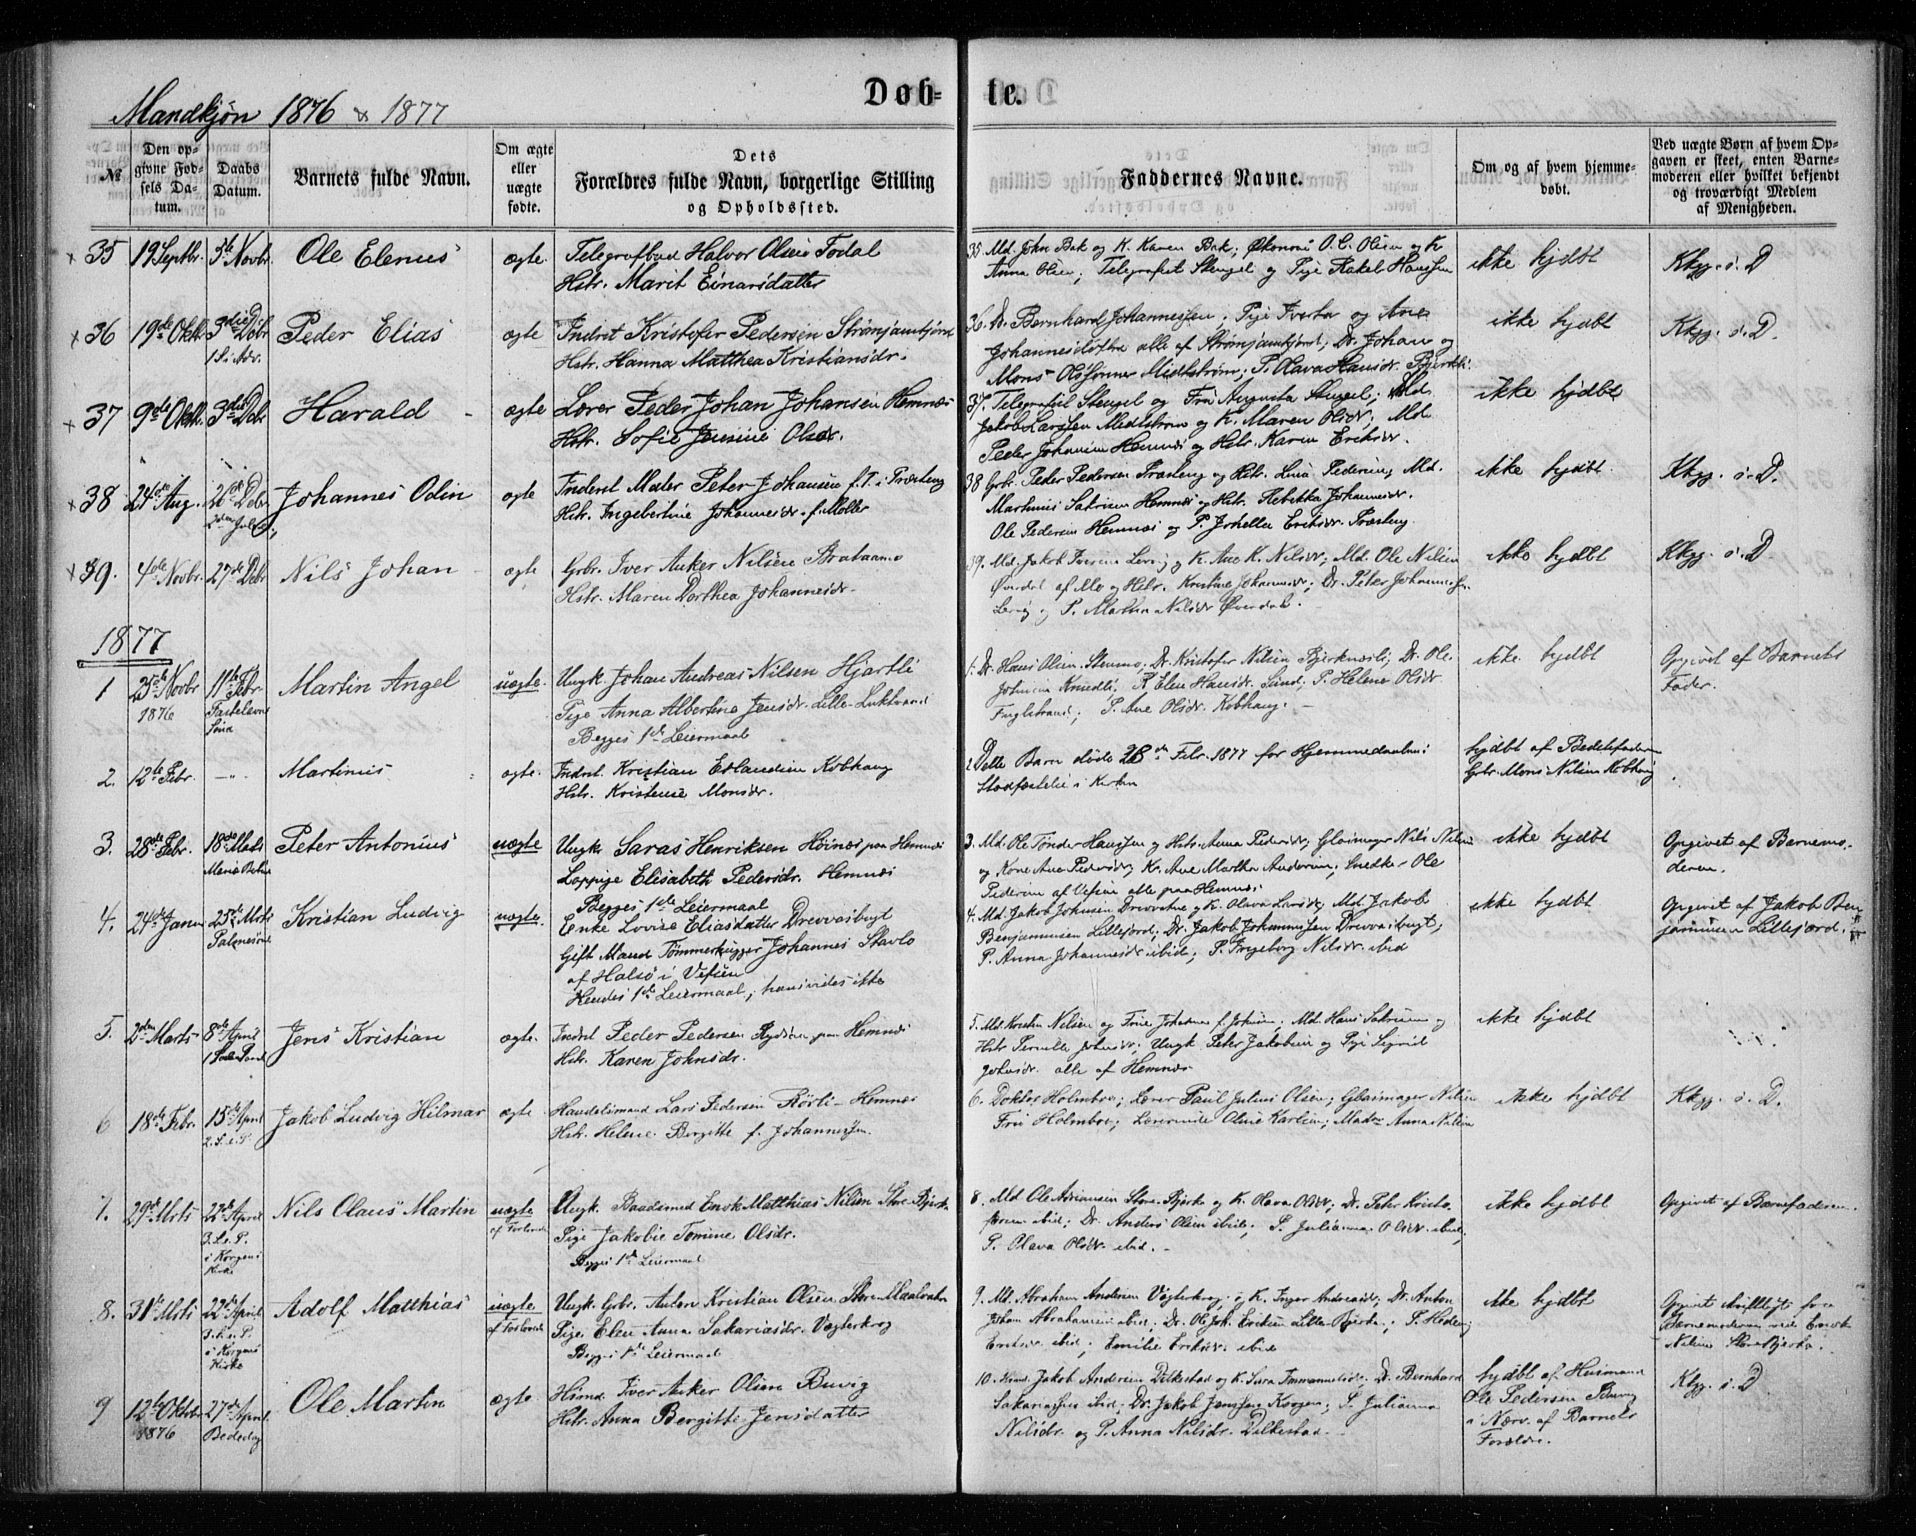 Mandkjøn 1876 & 1877
Døb-
te.
№
Den op-
givne Fød-
sels Da-
tum.
Daabs
Datum.
Barnets fulde Navn.
Om ægte
eller
uægte
fødte.
Dets
Forældres fulde Navn, borgerlige Stilling
og Opholdssted.
Faddernes Navne.
Om og af hvem hjemme-
døbt.
Ved uægte Børn af hvem Op-
gaven er skeet, enten Barne-
moderen eller hvilket bekjendt
og troværdigt Medlem
af Menigheden.
35 19 Septbr. 5te Novbr Ole Elenus ægte. Telegrafbud Halvor Olsen Fodal
Hstr. Marit Einarsdatter
35. Md. John Bek og K. Karen Bek; Økonom O. C. Olsen og K
Anna Olsen; Telegrafist Stengel og Pige Rakel Hanssen
ikke hjdbt
Kkg. s. D
36 19de Oktb 3die Debr
1 S. i Adv.
Peder Elias ægte Inderst Kristofer Pedersen Strømjamtjord
Hstr. Hanna Matthea Kristiansdr.
36. Dr. Bernhard Johannessen, Pige Iverka og Ane
Johannesdøttre alle af Strømjamtjord; Dr. Johan og
Mons Olssønner Midtstrøm; P. Olava Hansdr.
ikke hjdbt
Kkg. s. D.
37 9de Oktb. 3die Debr Harald ægte Lærer Peder Johan Johansen Hemnæs
Hstr. Sofie Jensine Olsdr.
37. Telegrafist Stengel og Fru Augusta Stengel; Md
Jakob Larssen Midtstrøm og K. Maren Olsdr; Md.
Peder Johansen Hemnæs og Hstr. Karen Eriksdr.
ikke hjdbt
38 24de Aug. 26de Debr
2den Juled.
Johannes Odin ægte Inderst Maler Peter Johansen f. T. i Træteng
Hstr. Ingebertine Johannesdr. f. Møller
38 Grb. Peder Pedersen Træteng og Hstr. Lina Pedersen; Md.
Martinus Sakrisen Hemnæs og Hstr. Rebekka Johannesdr.
Ole Pedersen Hemnæs og P. Johella Eriksdr. Træteng.
ikke hjdbt.
Kkg. s. D.
39. 4de Novbr. 27de Debr Nils Johan ægte Grbr. Iver Anker Nilsen Brataamo
Hstr. Maren Dorthea Johannesdr.
39. Md. Jakob Iversen Leirs og K. Ane K. Nilsdr; Md. Ole Nilsen
Øverdal af Mo og Hstr. Kristine Johannesdr; Dr. Peter Johannessen
og P. Martha Nilsdr Øverdal.
ikke hjdbt
Kkg. s. D
1877
1 25de Novbr
1876
11te Febr.
Fastelavns
Sønd
Martin Angel uægte. Ungk. Johan Andreas Nilsen Hjartli
Pige Anna Albertine Jensdr. Lille-Luktvand
Begges 1ste Leiermaal
1. Dr. Hans Olsen Stenmo, Dr. Kristofer Nilsen Bjerknæsli; Dr. Ole
Johnsen Knudli; K. Elen Hansdr. Sund; P. Helene Olsdr
Fuglstrand; P. Ane Olsdr. Kobhaug.
ikke hjdbt
Opgivet af Barnets
Fader.
2. 12te Febr. -"- Martinus ægte. Inderst. Kristian Erlandsen Kobhaug
Hstr. Kristense Monsdr.
2 Dette Barn døde 28de Febr. 1877 før Hjemmedaabens
Stadfæstelse i Kirken
hjdbt af Bedstefaderen
Grbr. Mons Nilsen Kobhaug
3. 28de Febr. 18de Mrts
Mariæ Beb.
Peter Antonius uægte Ungk. Saras Henriksen Høinæs paa Hemnæs
Lappige Elisabeth Pedersdr. Hemnæs
Begges 1ste Leiermaal
3. Md. Ole Tønder Hanssen og Hstr. Anna Pedersdr; Glasmager Nils Nilsen
og Kone Ane Pedersdr; K. Ane Martha Andersen; Snedker Ole
Pedersen af Vefsen alle paa Hemnæs
ikke hjdbt
Opgivet af Barnemo-
deren.
4. 24de Januar 25de Mrts
Palmesønd
Kristian Ludvig uægte. Enke Lovise Eliasdatter Drevvasbugt
Gift Mand Tømmerhugger Johannes Stavlo
af Halsø i Vefsen
Hendes 1ste Leiermaal, hans vides ikke
4. Md. Jakob Johnsen Drevvatne og K. Olava Larsdr; Md. Jakob
Benjaminsen Lillefjord; Dr. Jakob Johannessen Drevvasbugt;
P. Anna Johannesdr ibid; P. Ingeborg Nilsdr. ibid
ikke hjdbt
Opgivet af Jakob Ben-
jaminsen Lillefjord.
5. 2den Marts 8de April
1 S. e. P.
Jens Kristian ægte. Inderst Peder Pedersen paa Hemnæs
Hstr. Karen Johnsdr.
5. Md. Kristen Nilsen og Fru Johanna f. Johnsen; Md. Hans Sakrisen og
Hstr Pernille Johnsdr; Ungk Peter Jakobsen og Pige Sigrid
Johnsdr. alle af Hemnæs
ikke hjdbt
6 18de Febr. 15de April
2. S. e. P.
Jakob Ludvig Hilmar ægte Handelsmand Lars Pedersen Rørli - Hemnæs
Hstr. Helene Birgitte f. Johannessen.
6. Doktor Holmboe; Lærer Paul Julius Olsen; Glasmager Nilsen
Fru Holmboe; Lærerinde Oline Karlsen; Madm Anna Nilsen
ikke hjdbt
Kkg. s. D.
7. 29de Mrts 22de April
3. S. e. P.
i Korgens
Kirke
Nils Olaus Martin uægte
af Forlovede
Ungk. Baadsmed Enok Matthias Nilsen Store-Bjerka
Pige Jakobie Tomine Olsdr.
Begges 1ste Leiermaal
8. Md Ole Adriansen Store-Bjerka og K. Olava Olsdr; Dr. Peter Kristo-
fersen ibid; Dr. Anders Olsen ibid; P. Julianna Olsdr. ibid,
P. Olava Olsdr. ibid.
ikke hjdbt
Opgivet af Barnefaderen.
8. 31te Mrts 22de April
3. S. e. P.
i Korgens
Kirke
Adolf Matthias uægte
af Forlovede
Ungk. Grbr. Anton Kristian Olsen Store Maalvatn
Pige Elen Anna Sakariasdr. Vægterkrog
Begges 1ste Leiermaal
9. Md. Abraham Andersen Vægterkrog og K. Inger Andersdr; Dr. Anton
Johan Abrahamsen ibid; Dr. Ole Joh. Eriksen Lille-Bjerka; P. Hedevig
Eriksdr ibid; Emilie Eriksdr. ibid
ikke hjdbt
Opgivet skriftligt fra
Barnemoderen ved Enok
Nilsen Store Bjerka.
9 12te Oktbr
1876
27de April
Bededag
Ole Martin ægte. Husmd Iver Anker Olsen Buvig
Hstr. Anna Bergitte Jensdatter
10. Husmd. Jakob Andersen Dilkestad og K. Sara Immanuelsdr; Dr. Bernhard
Sakariassen ibid; Dr. Jakob Jenssen Korgen; P. Julianna
Nilsdr. og P. Anna Nilsdr. Dilkestad
hjdbt af Husmand
Ole Pedersen Buvig
i Nærv. af Barnets
Forældre.
Kkg. s. D